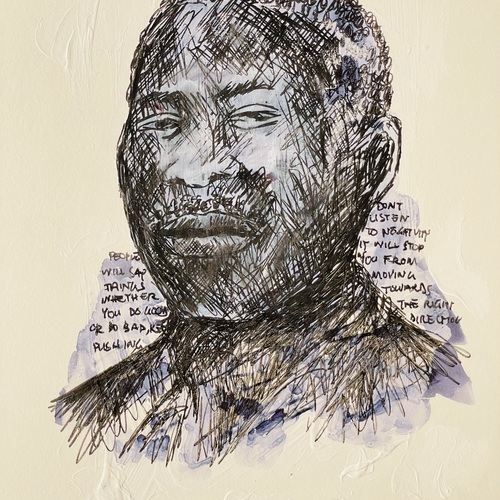 PEOPLE
WILL SAY
THINGS
WHETHER
YOU DO GOOD
OR DO BAD, KEEP
PUSHING
DONT
LISTEN
TO NEGATIVITY
IT WILL STOP
YOU FROM
MOVING
TOWARDS
THE RIGHT
DIRECTION